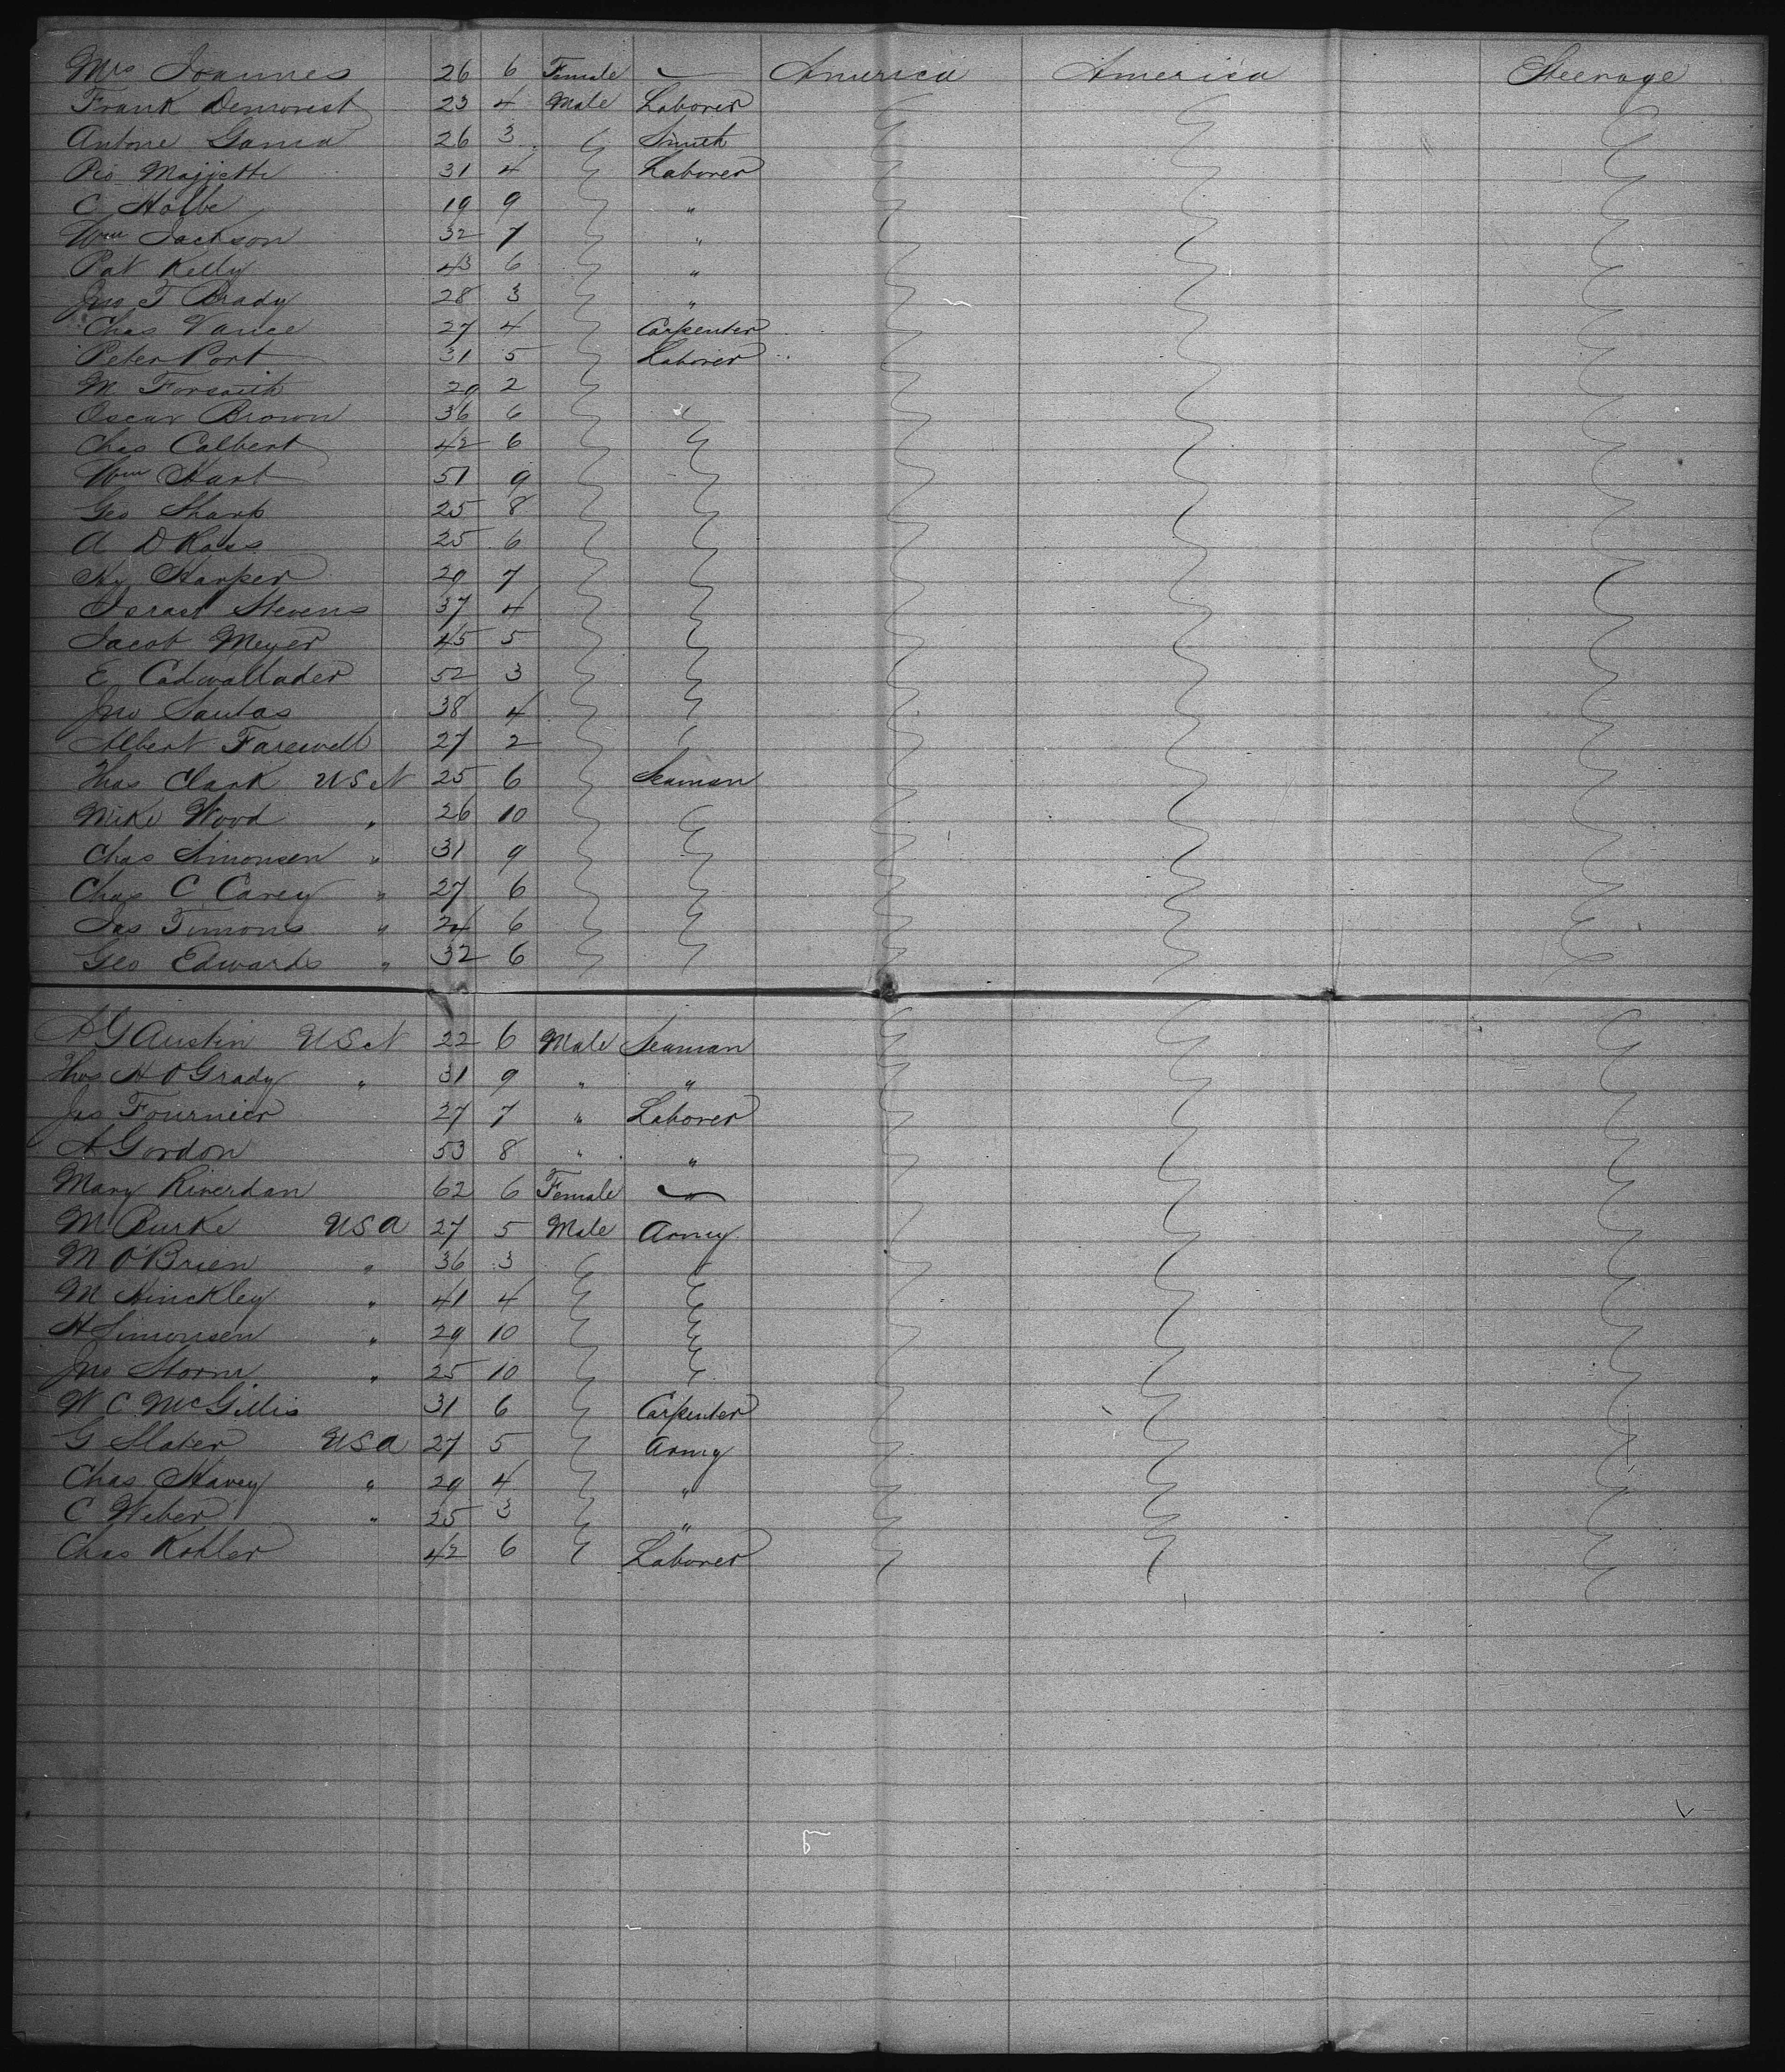 Mrs Joannes 26 6 Female America America Steerage
Frank Demorest 23 4 Male Laborer
Antone Gama 26 3 Smith
Pio 31 4 Laborer
C Holbe 19 9 "
Wm Jackson 32 7 "
Pat Kelly 43 6 "
Jno T Brady 28 3 "
Chas Vance 27 4 Carpenter
Peter Port 31 5 Laborer
M Forsaith 29 2
Oscar Brown 36 6
Chas Calbert 42 6
Wm Hart 51 9
Geo Sharp 25 8
A D Ross 25 6
Hy Harper 29 7
Israel Stevens 37 4
Jacob Meyer 45 5
E Cadwallader 52 3
Jno Santas 38 4
Albert Farewell 27 2
Thos Clark U S N 25 6 Seaman
Mike Wood " 26 10
Chas Simonsen " 31 9
Chas C Carey " 27 6
Jas Timons " 24 6
Geo Edwards " 32 6
A G Austin U S N 22 6 Male Seaman
Thos H O Grady " 31 9 " "
Jas Fournier 27 7 " Laborer
A Gordon 53 8 " "
Mary Riverdan 62 6 Female "
M Burke U S A 27 5 Male Army
M O'Brien " 36 3
M Hinckley " 41 4
H Simonsen " 29 10
Jno Storm " 25 10
W C McGillis 31 6 Carpenter
G Slater U S A 27 5 Army
Chas Harey " 29 4 "
C Weber " 25 3 "
Chas Kohler 42 6 Laborer